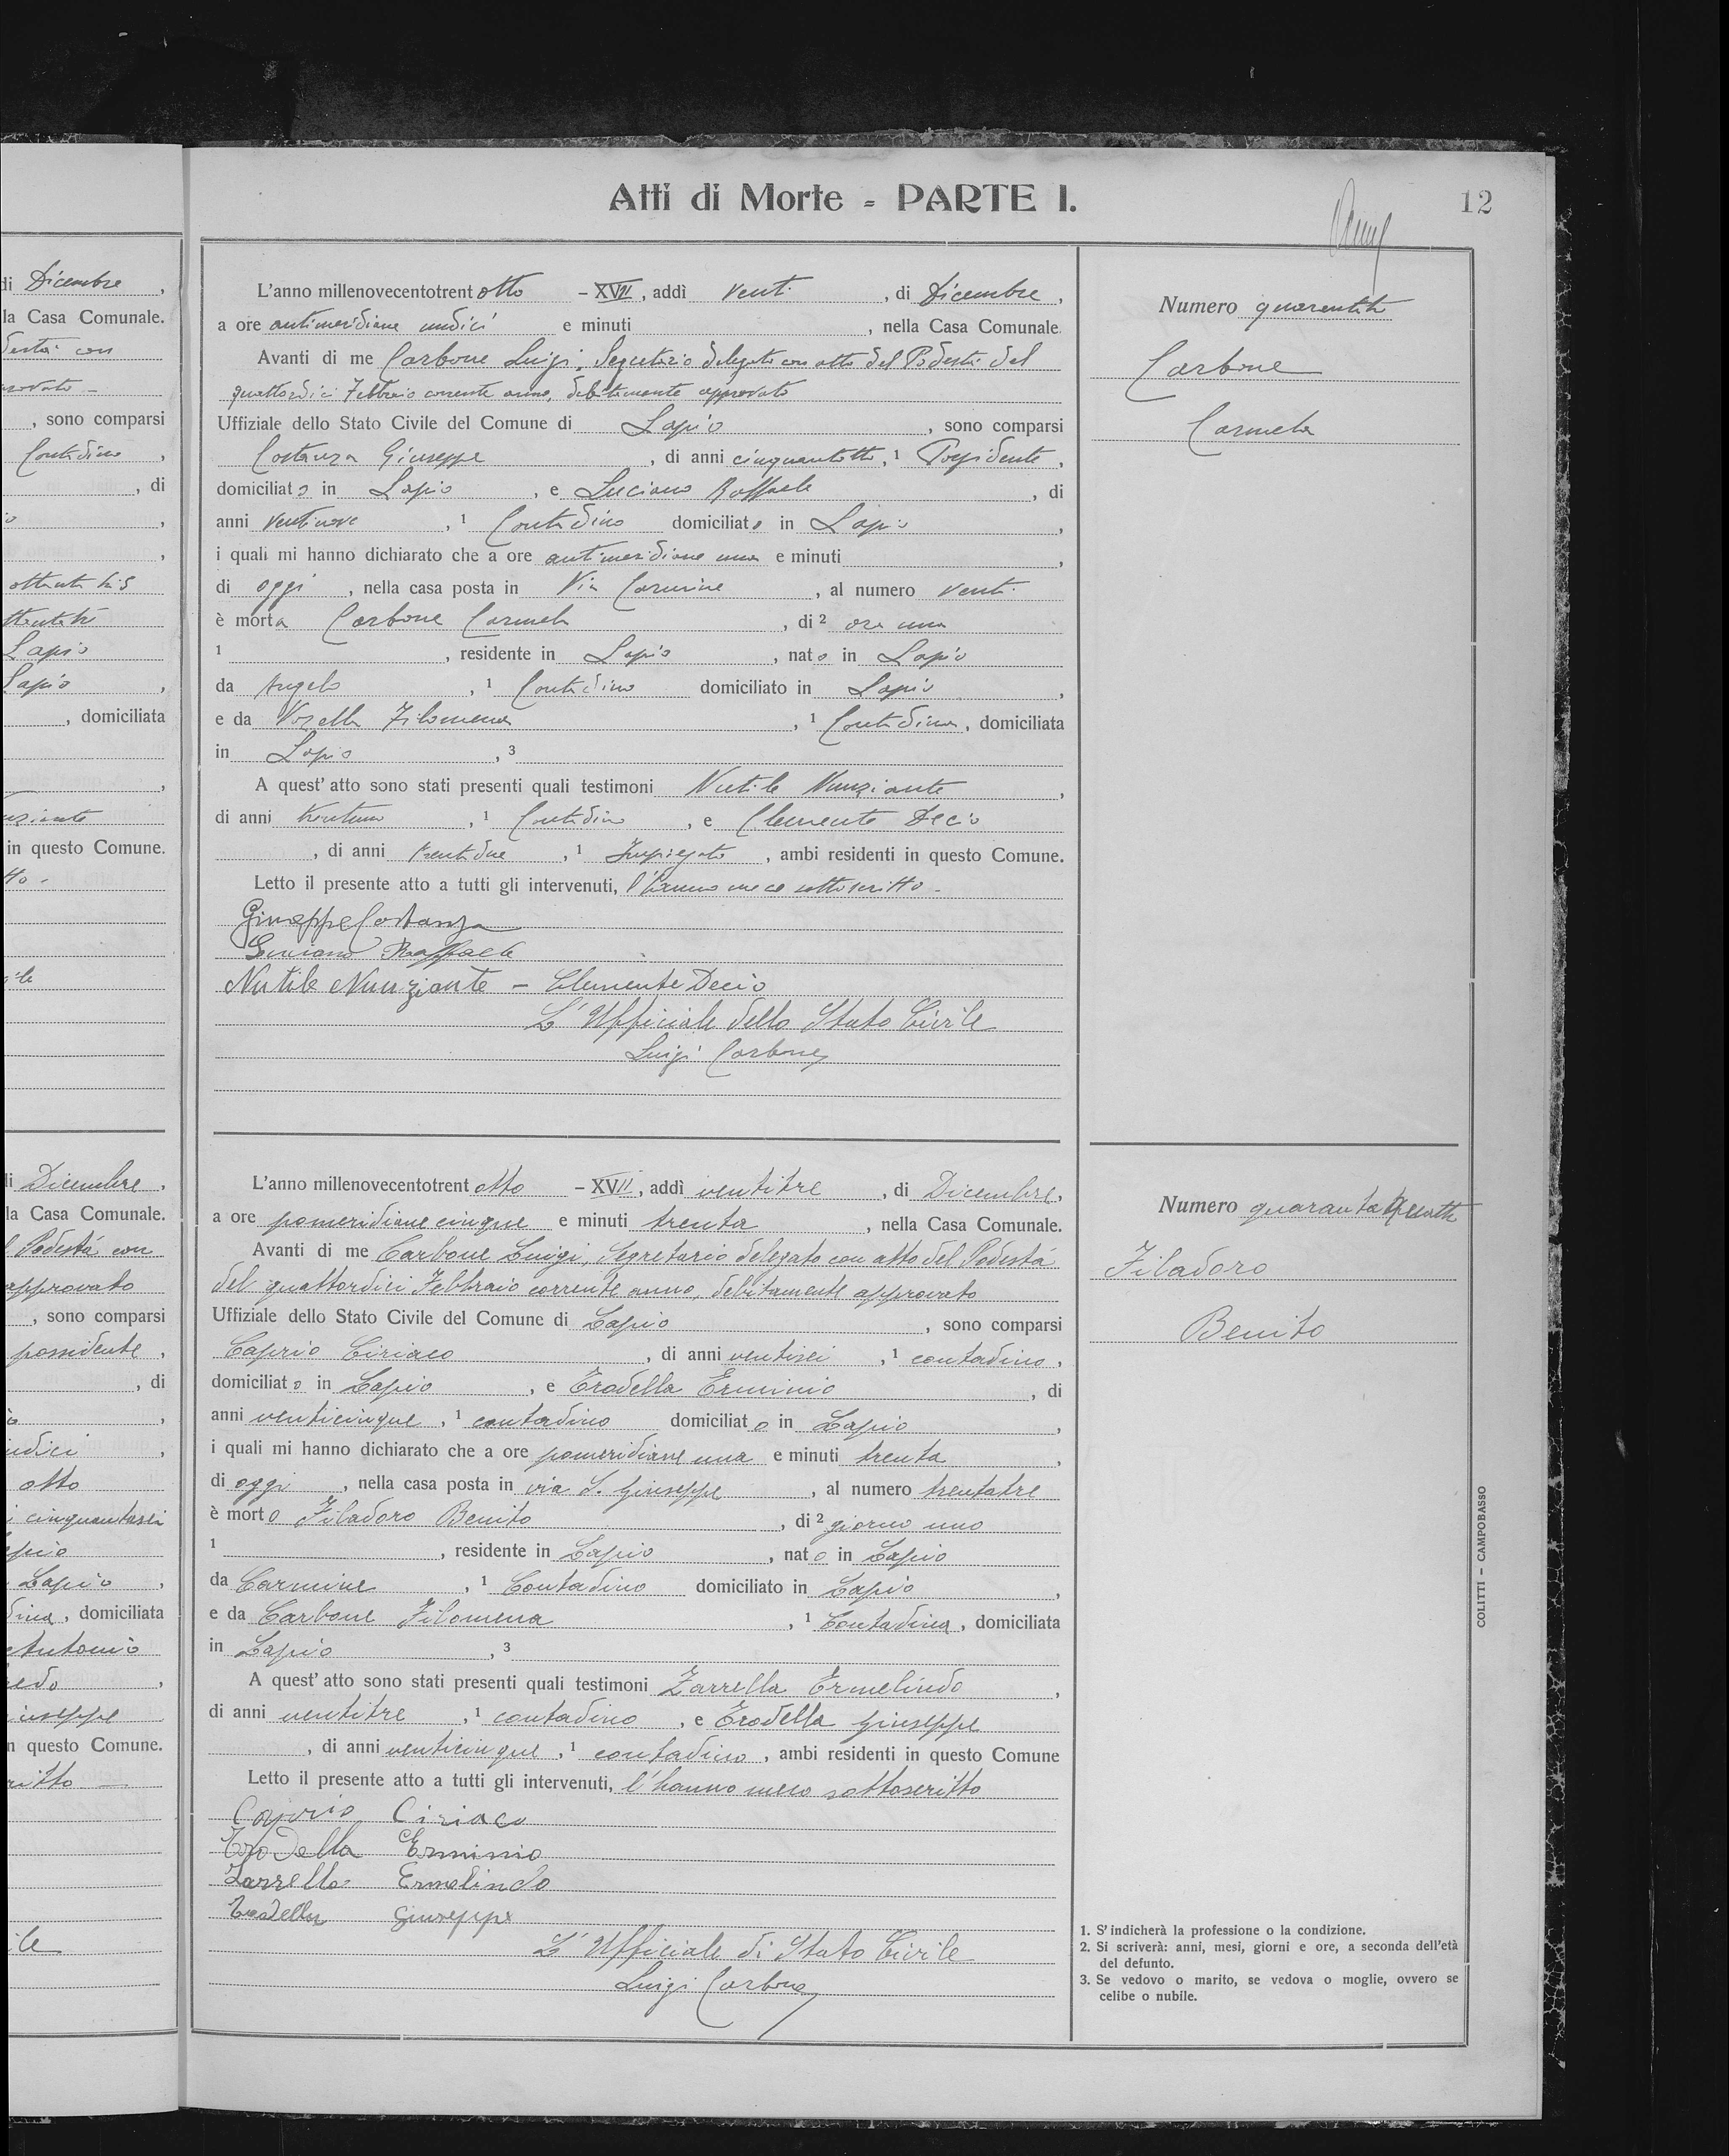 Atti di Morte - PARTE I.
12
di Dicembre,
la Casa Comunale.
, sono comparsi
Contadino,
, di
Lapio
Lapio,
, domiciliata
in questo Comune.
L'anno millenovecentotrent otto - XVII, addì venti, di Dicembre,
a ore antimeridiane undici e minuti , nella Casa Comunale.
Avanti di me Carbone Luigi, Segretario delegato con atto del Podestà del
quattordici Febbraio corrente anno, debitamente approvato
Uffiziale dello Stato Civile del Comune di Lapio, sono comparsi
Costanza Giuseppe, di anni cinquantotto, 1 Possidente,
domiciliato in Lapio, e Luciano Raffaele, di
anni ventinove, 1 Contadino domiciliato in Lapio,
i quali mi hanno dichiarato che a ore antimeridiane una e minuti ,
di oggi, nella casa posta in Via Carmine, al numero venti
è morta Carbone Carmela, di 2 ore una
1 , residente in Lapio, nato in Lapio
da Angelo, 1 Contadino domiciliato in Lapio,
e da Vozella Filomena, 1 Contadina, domiciliata
in Lapio, 3
A quest' atto sono stati presenti quali testimoni Nutile Nunziante,
di anni trentuno, 1 Contadino, e Clemente Decio
, di anni trentadue, 1 Impiegato, ambi residenti in questo Comune.
Letto il presente atto a tutti gli intervenuti, l'hanno meco sottoscritto -
Giuseppe Costanza
Luciano Raffaele
Nutile Nunziante - Clemente Decio
L' Ufficiale dello Stato Civile
Luigi Carbone
Numero quarantatre
Carbone
Carmela
di Dicembre,
la Casa Comunale.
Podestà con
approvato
, sono comparsi
possidente,
, di
otto
cinquantasei
Lapio,
, domiciliata
Antonio
n questo Comune.
L'anno millenovecentotrent otto - XVII, addì ventitre, di Dicembre,
a ore pomeridiane cinque e minuti trenta, nella Casa Comunale.
Avanti di me Carbone Luigi, Segretario delegato con atto del Podestà
del quattordici Febbraio corrente anno, debitamente approvato
Uffiziale dello Stato Civile del Comune di Lapio, sono comparsi
Caprio Ciriaco, di anni ventisei, 1 contadino,
domiciliato in Lapio, e Trodella Erminio, di
anni venticinque, 1 contadino domiciliato in Lapio,
i quali mi hanno dichiarato che a ore pomeridiane una e minuti trenta,
di oggi, nella casa posta in via S. Giuseppe, al numero trentatre
è morto Filadoro Benito, di 2 giorno uno
1 , residente in Lapio, nato in Lapio
da Carmine, 1 Contadino domiciliato in Lapio,
e da Carbone Filomena, 1 Contadina, domiciliata
in Lapio, 3
A quest' atto sono stati presenti quali testimoni Zarrella Ermelindo,
di anni ventitre, 1 contadino, e Trodella Giuseppe
, di anni venticinque, 1 contadino, ambi residenti in questo Comune
Letto il presente atto a tutti gli intervenuti, l'hanno meco sottoscritto
Caprio Ciriaco
Trodella Erminio
Zarrella Ermelindo
Trodella Giuseppe
L' Ufficiale di Stato Civile
Luigi Carbone
Numero quarantaquattro
Filadoro
Benito
1. S' indicherà la professione o la condizione.
2. Si scriverà: anni, mesi, giorni e ore, a seconda dell'età
del defunto.
3. Se vedovo o marito, se vedova o moglie, ovvero se
celibe o nubile.
COLITTI - CAMPOBASSO